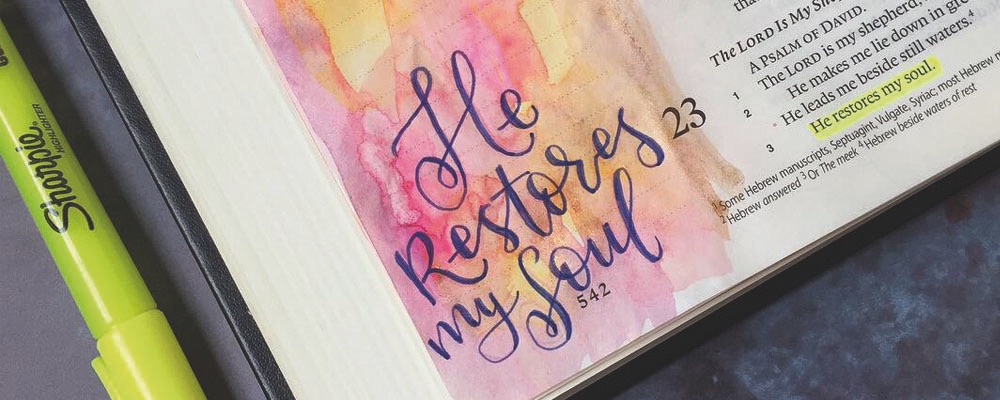 Sharpie
HIGHLIGHTER
He
Restores
my Soul
542
23
The LORD Is My
A PSALM OF DAVID.
1 The LORD is my shepherd;
2 He makes me lie down in
He leads me beside still waters.⁴
3 He restores my soul.
¹ Some Hebrew manuscripts, Septuagint, Vulgate, Syriac; most Hebrew
² Hebrew answered ³ Or The meek ⁴ Hebrew beside waters of rest